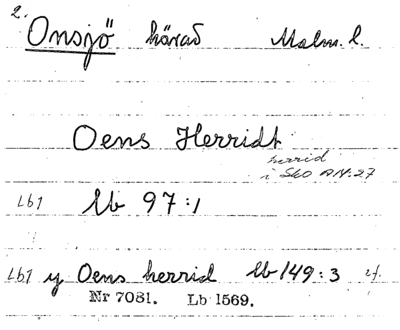 2.
Onsjö härad Malm. l.
Oens Herridt
herrid
i Sko AN:27
Lb1 Lb 97:1
Lb1 y Oens herrid Lb 149:3
Nr 7081. Lb 1569.